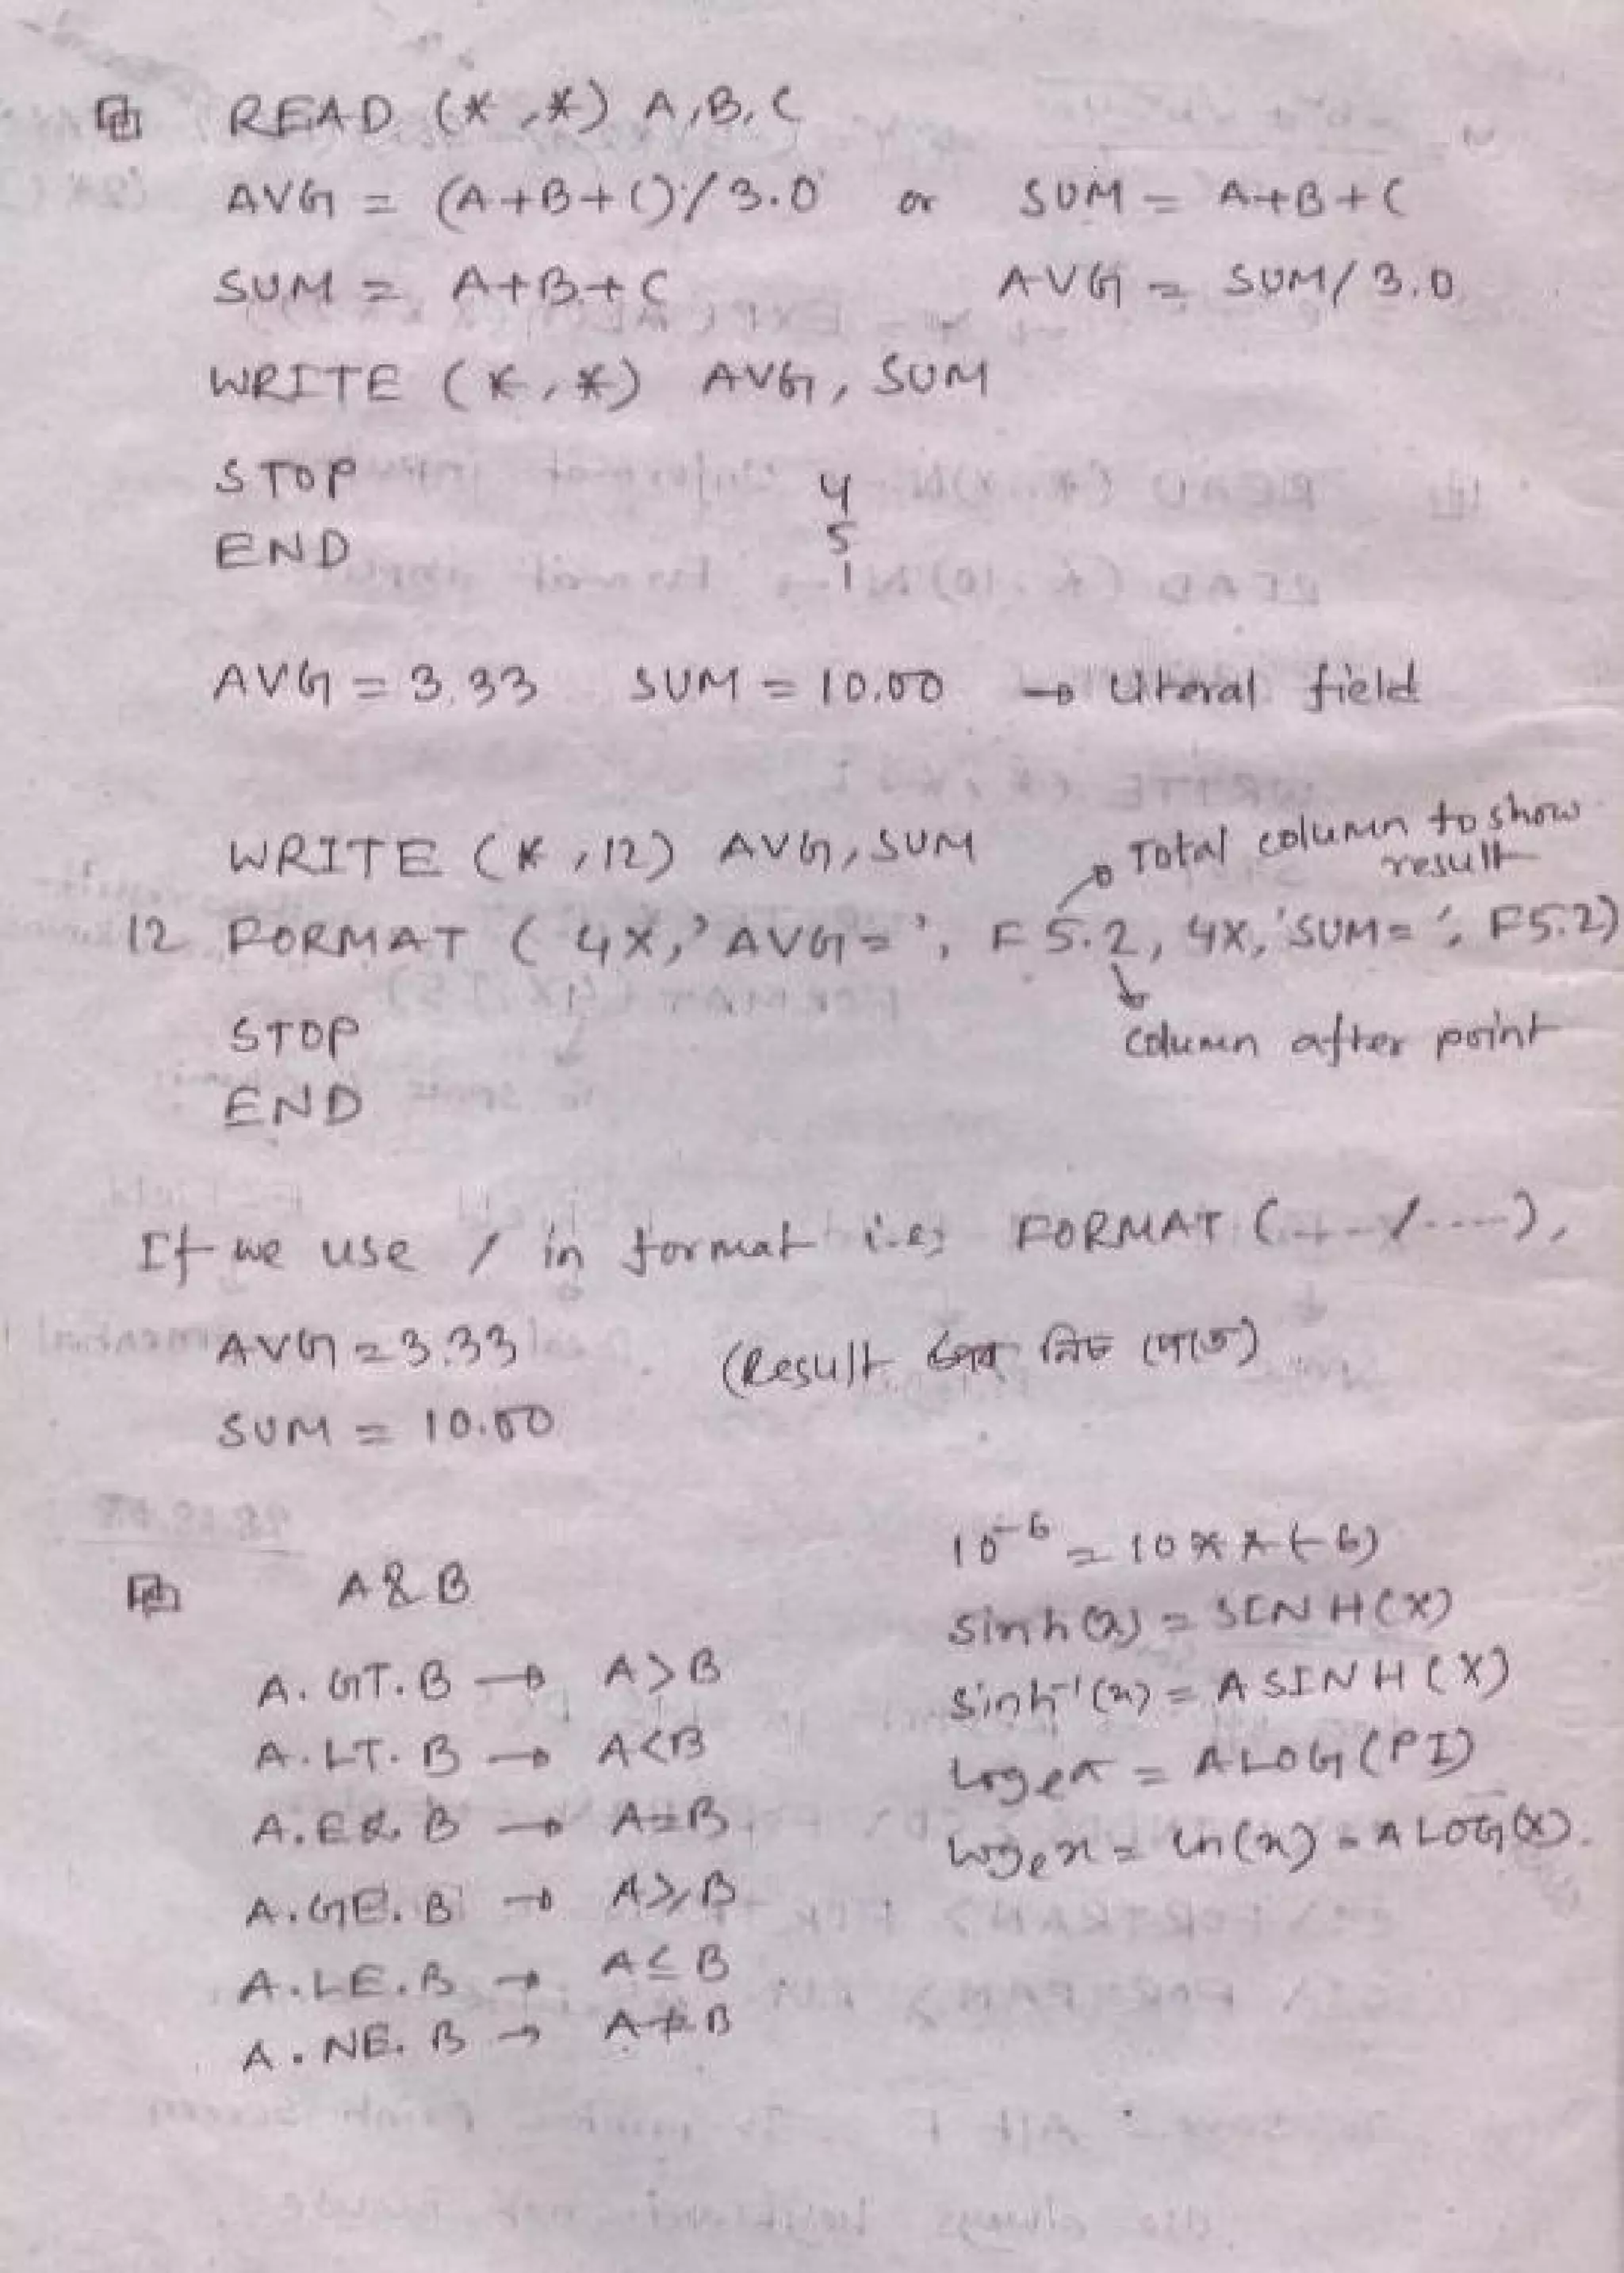 READ (*,*) A,B,C
AVG = (A+B+C)/3.0 or SUM = A+B+C
SUM = A+B+C AVG = SUM/3.0
WRITE (*,*) AVG, SUM
STOP 4
END 5
1
AVG = 3.33 SUM = 10.00 → Literal field
WRITE (*,12) AVG, SUM
Total column to show result
12 FORMAT ( 4X,'AVG=', F5.2, 4X,'SUM=', F5.2)
STOP column after point
END
If we use / in format i.e; FORMAT (----/----),
AVG = 3.33 (Result উপর নিচ
SUM = 10.00
A & B
A.GT.B → A>B
A.LT.B → A<B
A.EQ.B → A=B
A.GE.B → A≥B
A.LE.B → A≤B
A.NE.B → A≠B
10⁻⁶ = 10**(-6)
sinh(x) = SINH(X)
sinh⁻¹(x) = ASINH(X)
logeπ = ALOG(PI)
logex = ln(x) = ALOG(X).